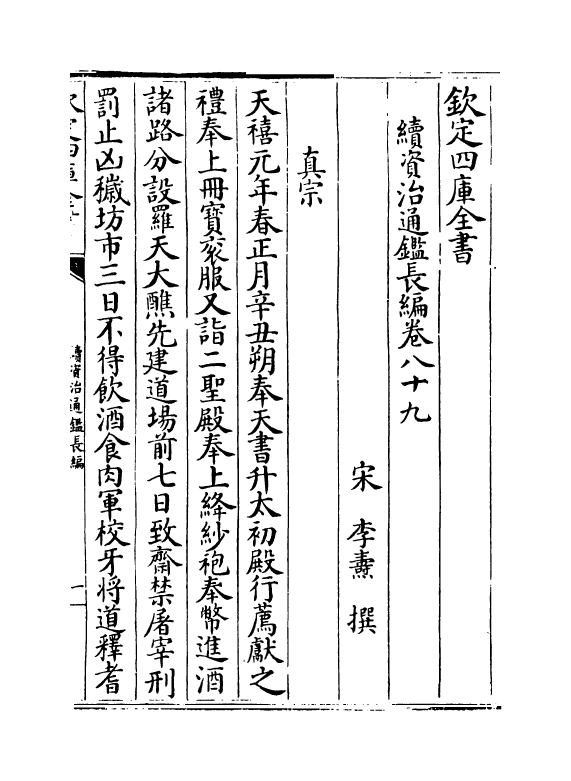 欽定四庫全書
續資治通鑑長編卷八十九
宋 李燾 撰
真宗
天禧元年春正月辛丑朔奉天書升太初殿行薦獻之
禮奉上冊寶衮服又詣二聖殿奉上絳紗袍奉幣進酒
諸路分設羅天大醮先建道場前七日致齋禁屠宰刑
罰止凶穢坊市三日不得飲酒食肉軍校牙將道釋耆
欽定四庫全書
續資治通鑑長編
一